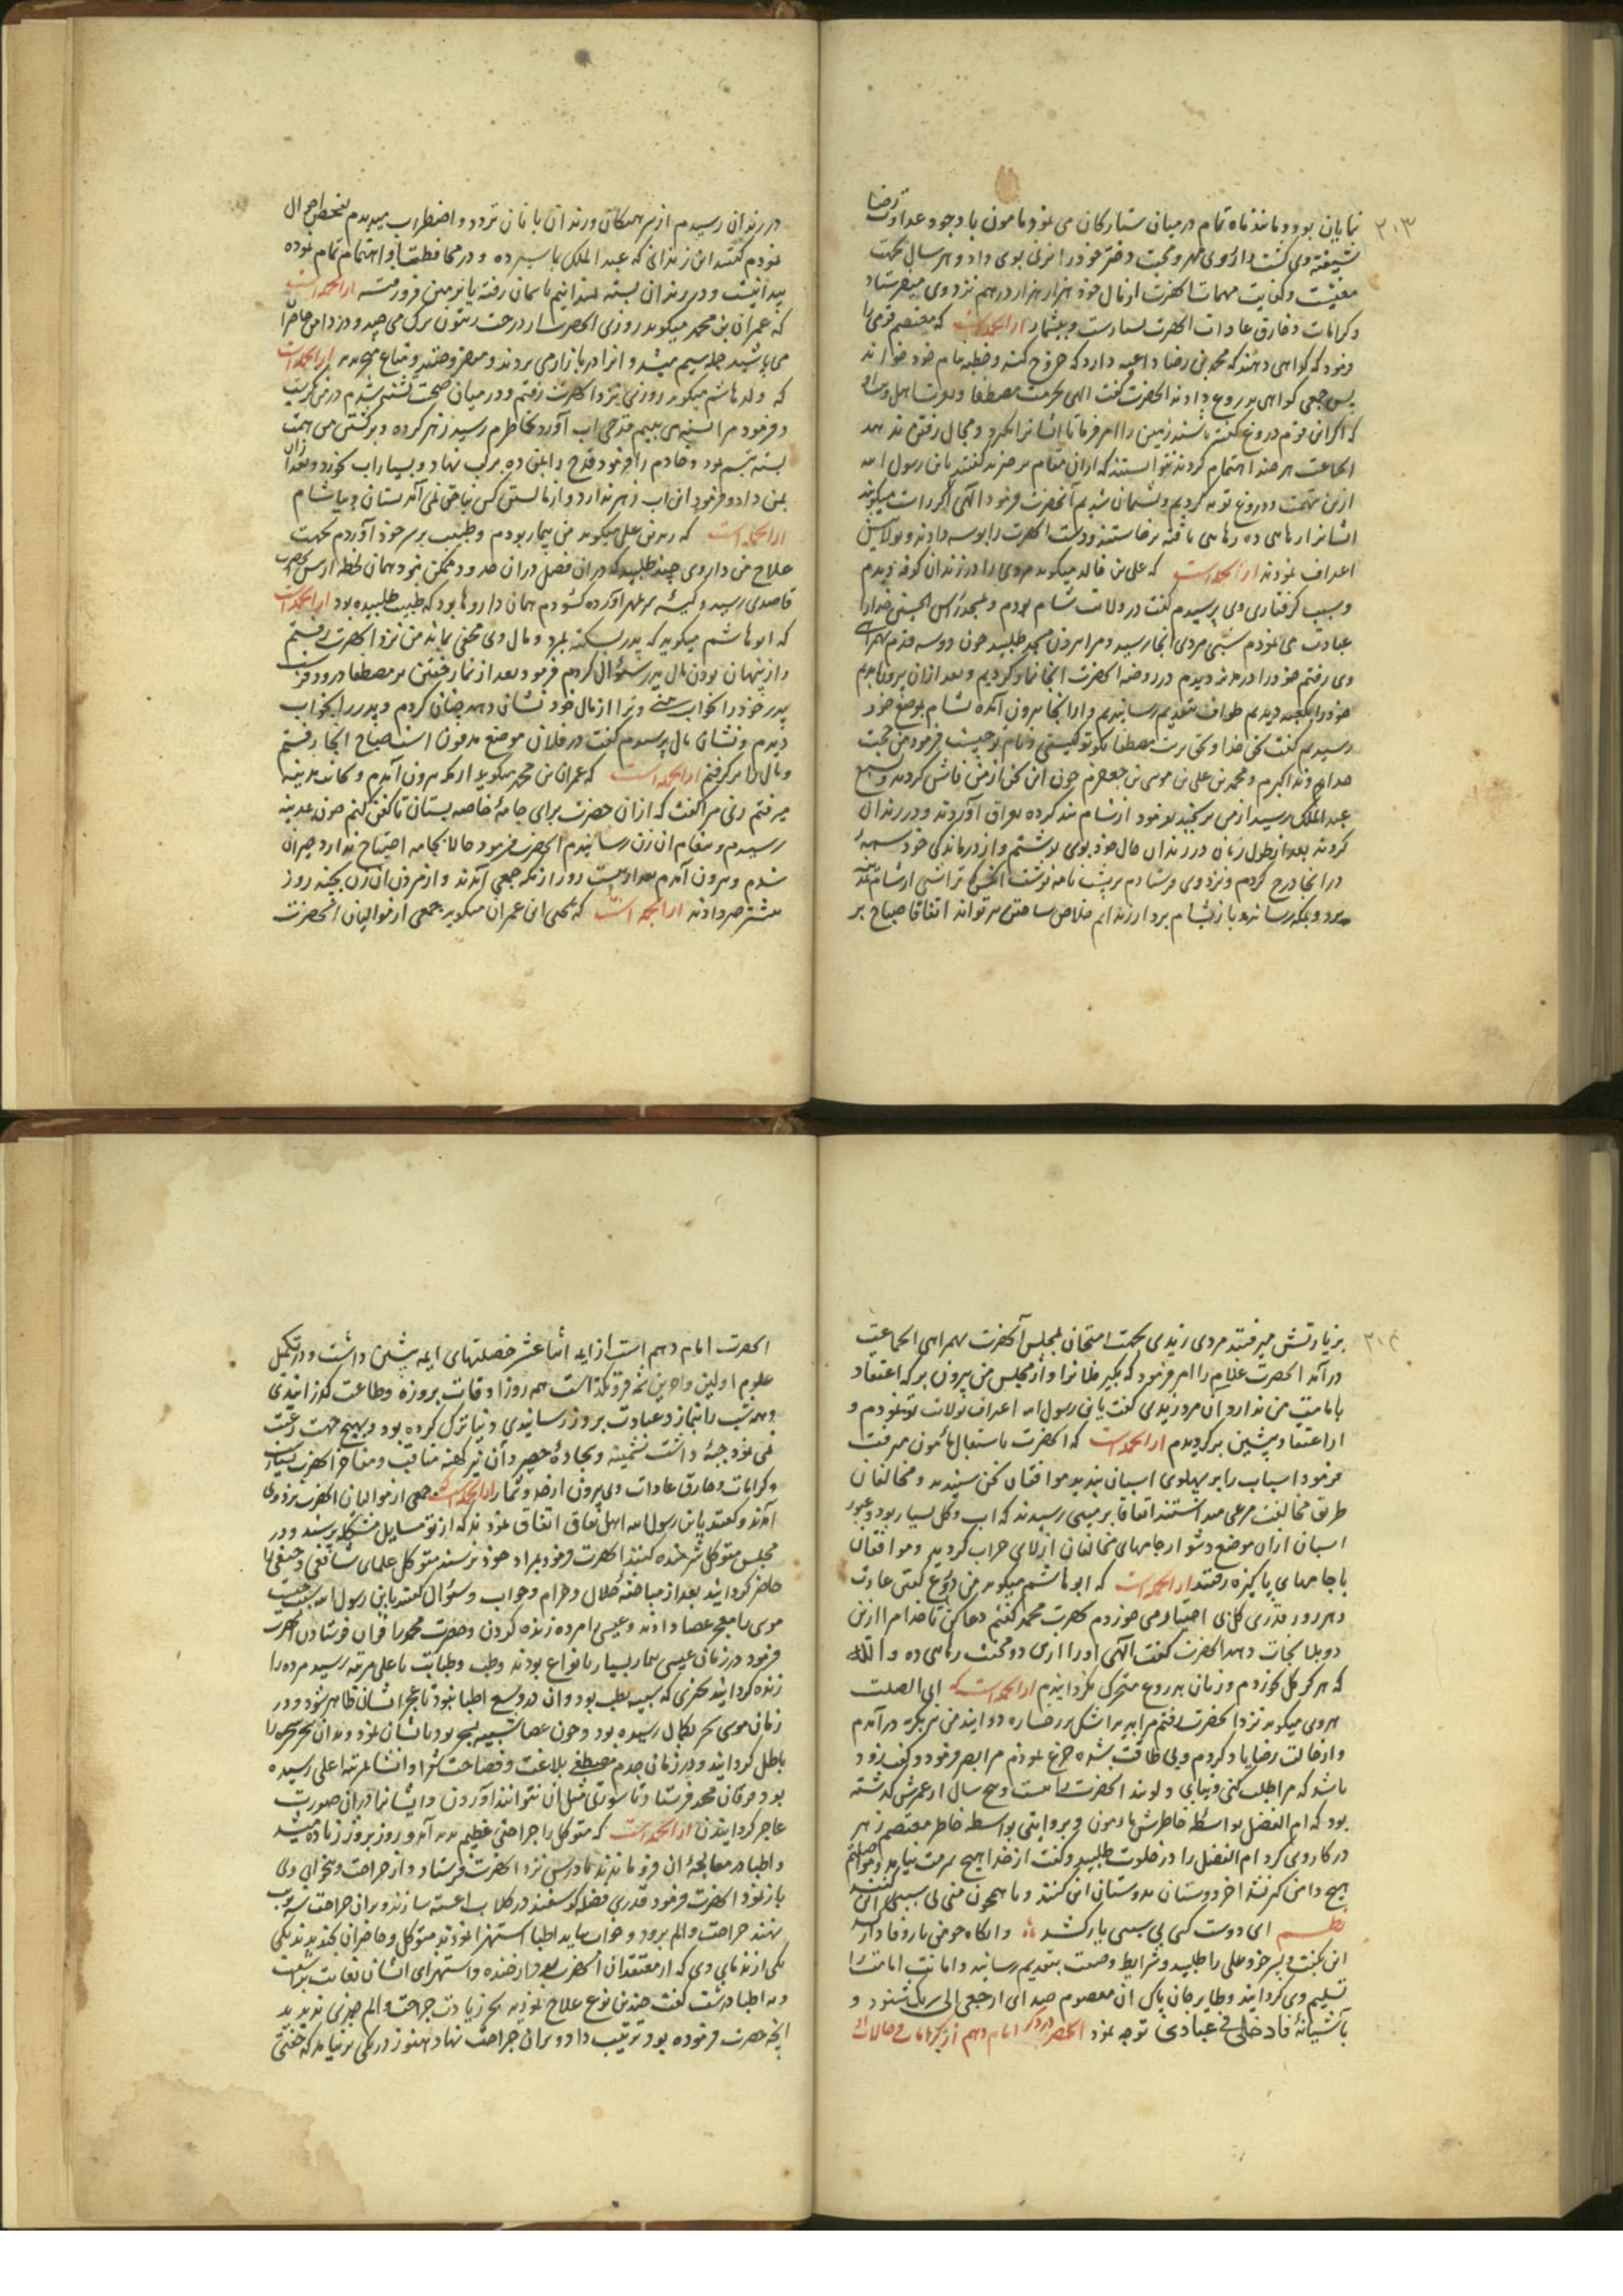 ۲۰۳
نمایان بود و مانند ماه تمام در میان ستارکان می نمود مامون با وجود عداوت رضا
شیفته وی کشت و از روی مهر و محبت دختر خود را بوی داد و هر سال بجهت
معیشت و کفایت مهمات آنحضرت از مال خود هزار هزار درهم نزد وی میفرستاد
و کرامات و خارق عادات آنحضرت بسیارست و بیشمار از انجمله است که معتصم قومی را
فرمود که کواهی دهند که محمد بن رضا داعیه دارد که خروج کند و خطبه بنام خود خواند
پس جمعی کواهی بدروغ دادند آنحضرت گفت الهی بحرمت مصطفا
که اکر این قوم دروغ گفته باشند زمین را امر فرما تا ایشانرا بگیرد و مجال رفتن ندهد
الجماعت هر چند اهتمام کردند نتوانستند که از ان مقام برخیزند گفتند یا بن رسول الله
ازین تهمت و دروغ توبه کردیم و پشیمان شدیم آنحضرت فرمود الهی اکر راست میگویند
ایشانرا رهایی ده رهایی یافته برخاستند و دست آنحضرت را بوسه دادند و بولایتش
اعتراف نمودند از انجمله است که علی بن خالد میگوید مردی را در زندان کوفه دیدم
و سبب کرفتاری وی پرسیدم گفت در ولایت شام بودم و بمسجد راس الحسین خدا را
عبادت می نمودم شبی مردی انجا رسید و مرا بیرون مسجد طلبید چون دوسه قدم بهمراهی
وی رفتم خود را در مدینه دیدم در روضه آنحضرت انجا نماز کردیم و بعد از ان بیرون آمدیم
خود را بمکه دیدیم طواف بتقدیم رسانیدیم و از انجا بیرون آمده بشام بموضع خود
رسیدیم گفت بحق خدا و بحرمت مصطفا بکو تو کیستی و نام تو چیست فرمود من حجت
خداوند اکبرم و محمد بن علی بن موسی بن جعفرم چون این سخن از من فاش کردید و بسمع
عبد الملک رسید از من برنجید بفرمود از شام بند کرده بعراق آوردند و در زندان
کردند بعد از طول زمان در زندان حال خود بوی نوشتم و از درماندکی خود
در انجا درج کردم و نزد وی فرستادم بر پشت نامه نوشت انکس که ترا شبی از شام بمدینه
برد و بمکه رسانید و باز بشام برد از زندانم خلاص ساختن میتواند اتفاقا صباح بر
در زندان رسیدم از سرهنکان و زندان بانان تردد و اضطراب میدیدم تفحص احوال
نمودم گفتند این زندانی که عبد الملک بما سپرده و در محافظت او اهتمام تمام نموده
پیدا نیست و در زندان بسته نمیدانیم بآسمان رفته یا بزمین فرو رفته از انجمله است
که عمران بن محمد میکوید روزی آنحضرت از درخت زیتون برک می چید و در دامن حاضران
می پاشید جمله سیم میشد و انرا در بازار می بردند و میفروختند از انجمله است
که ولد هاشم میکوید روزی نزد آنحضرت رفتم و در میان صحبت تشنه شدم
و فرمود مرا تشنه می بینم قدحی آب آورد بخاطرم رسید زهر کرده و بر کشتن من همت
بسته تبسم نمود و خادم را فرمود قدح را بمن ده بر لب نهاد و بسیار آب بخورد و بعد از ان
بمن داد و فرمود این آب زهر ندارد و از ما بستن کس نباختی نمی آید بستان و بیاشام
از انجمله است که زید بن علی میکوید من بیمار بودم و طبیب بر سر خود آوردم بجهت
علاج من داروی چند طلبید که در ان فصل در ان حدود ممکن نبود همان لحظه از پیش آنحضرت
قاصدی رسید و کیسه سر بمهر آورده کشودم همان داروها بود که طبیب طلبیده بود از انجمله است
که ابو هاشم میکوید که پدر بسکته بمرد و مال وی مخفی بماند من نزد آنحضرت رفتم
و از پنهان بودن مال پدر سؤال کردم فرمود بعد از نماز خفتن بر مصطفا درود فرست
پدر خود را بخواب بینی و ترا از مال خود نشان دهد چنان کردم و پدر را بخواب
دیدم و نشان مال پرسیدم گفت در فلان موضع مدفون است صباح انجا رفتم
و مال را برکرفتم از انجمله است که عمران بن محمد میکوید از مکه بیرون آمدم و بجانب مدینه
میرفتم زنی مرا گفت که از ان حضرت برای جامهٔ خاصه بستان تا کفن کنم چون بمدینه
رسیدم و پیغام ان زن رسانیدم آنحضرت فرمود حالا بجامه احتیاج ندارد حیران
شدم و بیرون آمدم بعد از بیست روز از مکه جمعی آمدند و از مردن ان زن بچند روز
پیشتر خبر دادند از انجمله است که یحیی ابن عمران میکوید جمعی از موالیان آنحضرت
۲۰۴
بزیارتش میرفتند مردی زیدی بجهت امتحان بمجلس آنحضرت بهمراهی الجماعت
در آمد آنحضرت غلام را امر فرمود که بکیر فلانرا و از مجلس من بیرون بر که اعتقاد
بامامت من ندارد ان مرد زیدی گفت یا بن رسول الله اعتراف بولایت تو نمودم و
از اعتقاد پیشین برکردیدم از انجمله است که آنحضرت باستقبال مأمون میرفت
فرمود اسباب را بر پهلوی اسبان بندید موافقان سخن شنیدند و مخالفان
طریق مخالفت مرعی میداشتند اتفاقا بزمینی رسیدند که آب و کل بسیار بود و عبور
اسبان از ان موضع دشوار جامهای مخالفان از لای خراب کردید و موافقان
با جامهای پاکیزه رفتند از انجمله است که ابو هاشم میکوید من دروغ گفتی عادت
و هر روز قدری کل بی اختیار می خوردم بحضرت محمد گفتم دعا کن تا خدا مرا ازین
دو بلا نجات دهد آنحضرت گفت الهی او را ازین دو محنت رهایی ده والله
که هرکز کل نخوردم و زبان بدروغ متحرک نکردانیدم از انجمله است که ابی الصلت
هروی میکوید نزد آنحضرت رفتم مرا دید اشک بر رخساره دوانید من بکریه در آمدم
و از حالت رضا یاد کردم و بی طاقت شده جزع نمودم مرا بصبر فرمود و گفت زود
باشد که مرا طلب کنی و نیابی و لوند آنحضرت بیست و پنج سال از عمرش کذشته
بود که ام الفضل بواسطه خاطرش مامون و بروایتی بواسطه خاطر معتصم زهر
در کار وی کرد ام الفضل را در خلوت طلبید و گفت از خدا هیچ شرمت نیامد
هیچ دامن کیرت نشد آخر دوستان بدوستان این کنند و با همچون منی بی سببی این
نظم ای دوست کسی بی سببی یار کشد وانکاه چو من یار وفادار کشد
این بگفت و پسر خود علی را طلبید و شرایط وصیت بتقدیم رسانید و امانت امامت را
تسلیم وی کردانید و طایر جان پاک ان معصوم صدای ارجعی الی ربک شنود و
بآشیانهٔ فادخلی فی عبادی توجه نمود
آنحضرت امام دهم است از ایمه اثنا عشر خصلتهای ایمه پیشین داشت و در تکمیل
علوم اولین و آخرین همه روز اوقات بروزه و طاعت کذرانیدی
و همه شب را بنماز و عبادت بروز رسانیدی و دنیا ترک کرده بود و بهیچ جهت رغبت
نمی نمود جبهٔ داشت پشمینه و سجادهٔ حصیر و آن نیز کهنه مناقب و مفاخر آنحضرت بسیار
و کرامات و خارق عادات وی بیرون از حد و شمار از انجمله است که جمعی از موالیان آنحضرت نزد وی
آمدند و گفتند یا بن رسول الله اهل نفاق اتفاق نمودند که از تو مسایل مشکله پرسند و در
مجلس متوکل شرمنده کنند آنحضرت فرمود بمراد خود نرسند متوکل علمای شافعی و حنفی را
حاضر کردانید بعد از مباحثهٔ حلال و حرام و جواب و سؤال گفتند یا بن رسول الله سبب چیست
موسی را معجز عصا دادند و عیسی را مرده زنده کردن و حضرت محمد را قران فرستادن آنحضرت
فرمود در زمان عیسی بیمار بسیار بانواع بودند و طب و طبابت باعلی مرتبه رسید مرده را
زنده کردانید بچیزی که شبیه بطب بود و ان در وسع اطبا نبود تا عجز ایشان ظاهر شود و در
زمان موسی سحر بکمال رسیده بود و چون عصا شبیه بسحر بود بایشان نمود و بدان سحر سحره را
باطل کردانید و در زمان جدم مصطفی بلاغت و فصاحت شعرا و انشا بمرتبه اعلی رسیده
بود فرقان محمد فرستاد تا سورتی مثل ان نتوانند آوردن و ایشانرا بدان صورت
عاجز کردانیدن از انجمله است که متوکل را جراحتی عظیم پدید آمد و روز بروز زیاده میشد
و اطبا در معالجهٔ ان فرو ماندند مادرش نزد آنحضرت فرستاد و از جراحت و بیخوابی وی
باز نمود آنحضرت فرمود قدری فضلهٔ کوسفند در کلاب اغشته سازند و بر ان جراحت بشب
نهند جراحت و الم برود و خواب بیاید اطبا استهزا نمودند متوکل و حاضران بخندیدند یکی
یکی از ندمای وی که از معتقدان آنحضرت بود از خنده و استهزای ایشان بغایت برآشفت
و به اطبا درشت گفت چندین نوع علاج نمودید بجز زیادت جراحت و الم چیزی ندیدید
انچه حضرت فرموده بود ترتیب داد و بر ان جراحت نهاد هنوز درنکی بر نیامد که خفتن